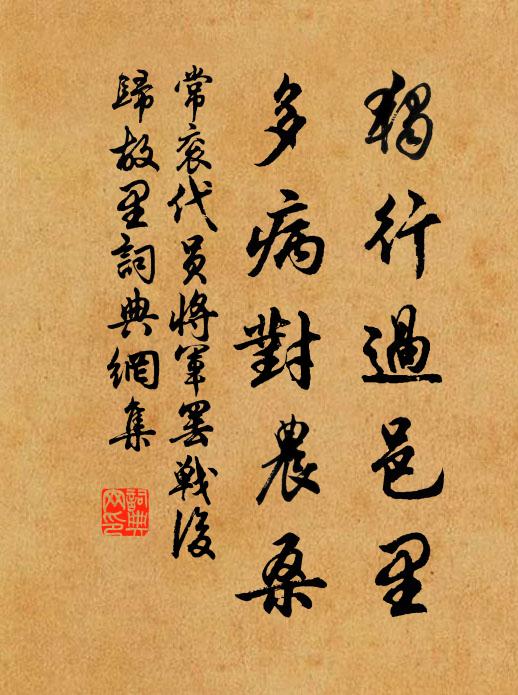 獨行過邑里
多病對農桑
常袞代員將軍罷戰後
歸故里詞典網集
詞典
网印